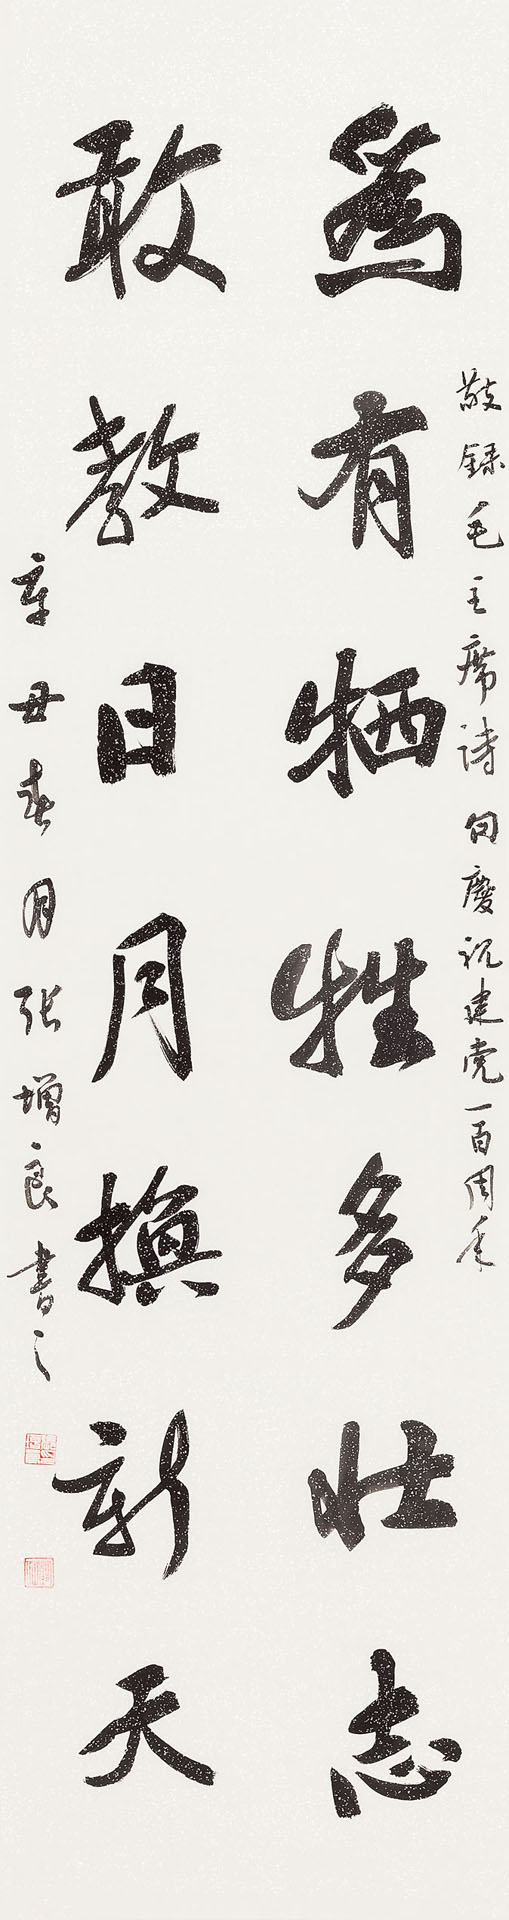 敬録毛主席詩句慶祝建党一百周年
為有牺牲多壮志
敢教日月換新天
辛丑春月张增良書之